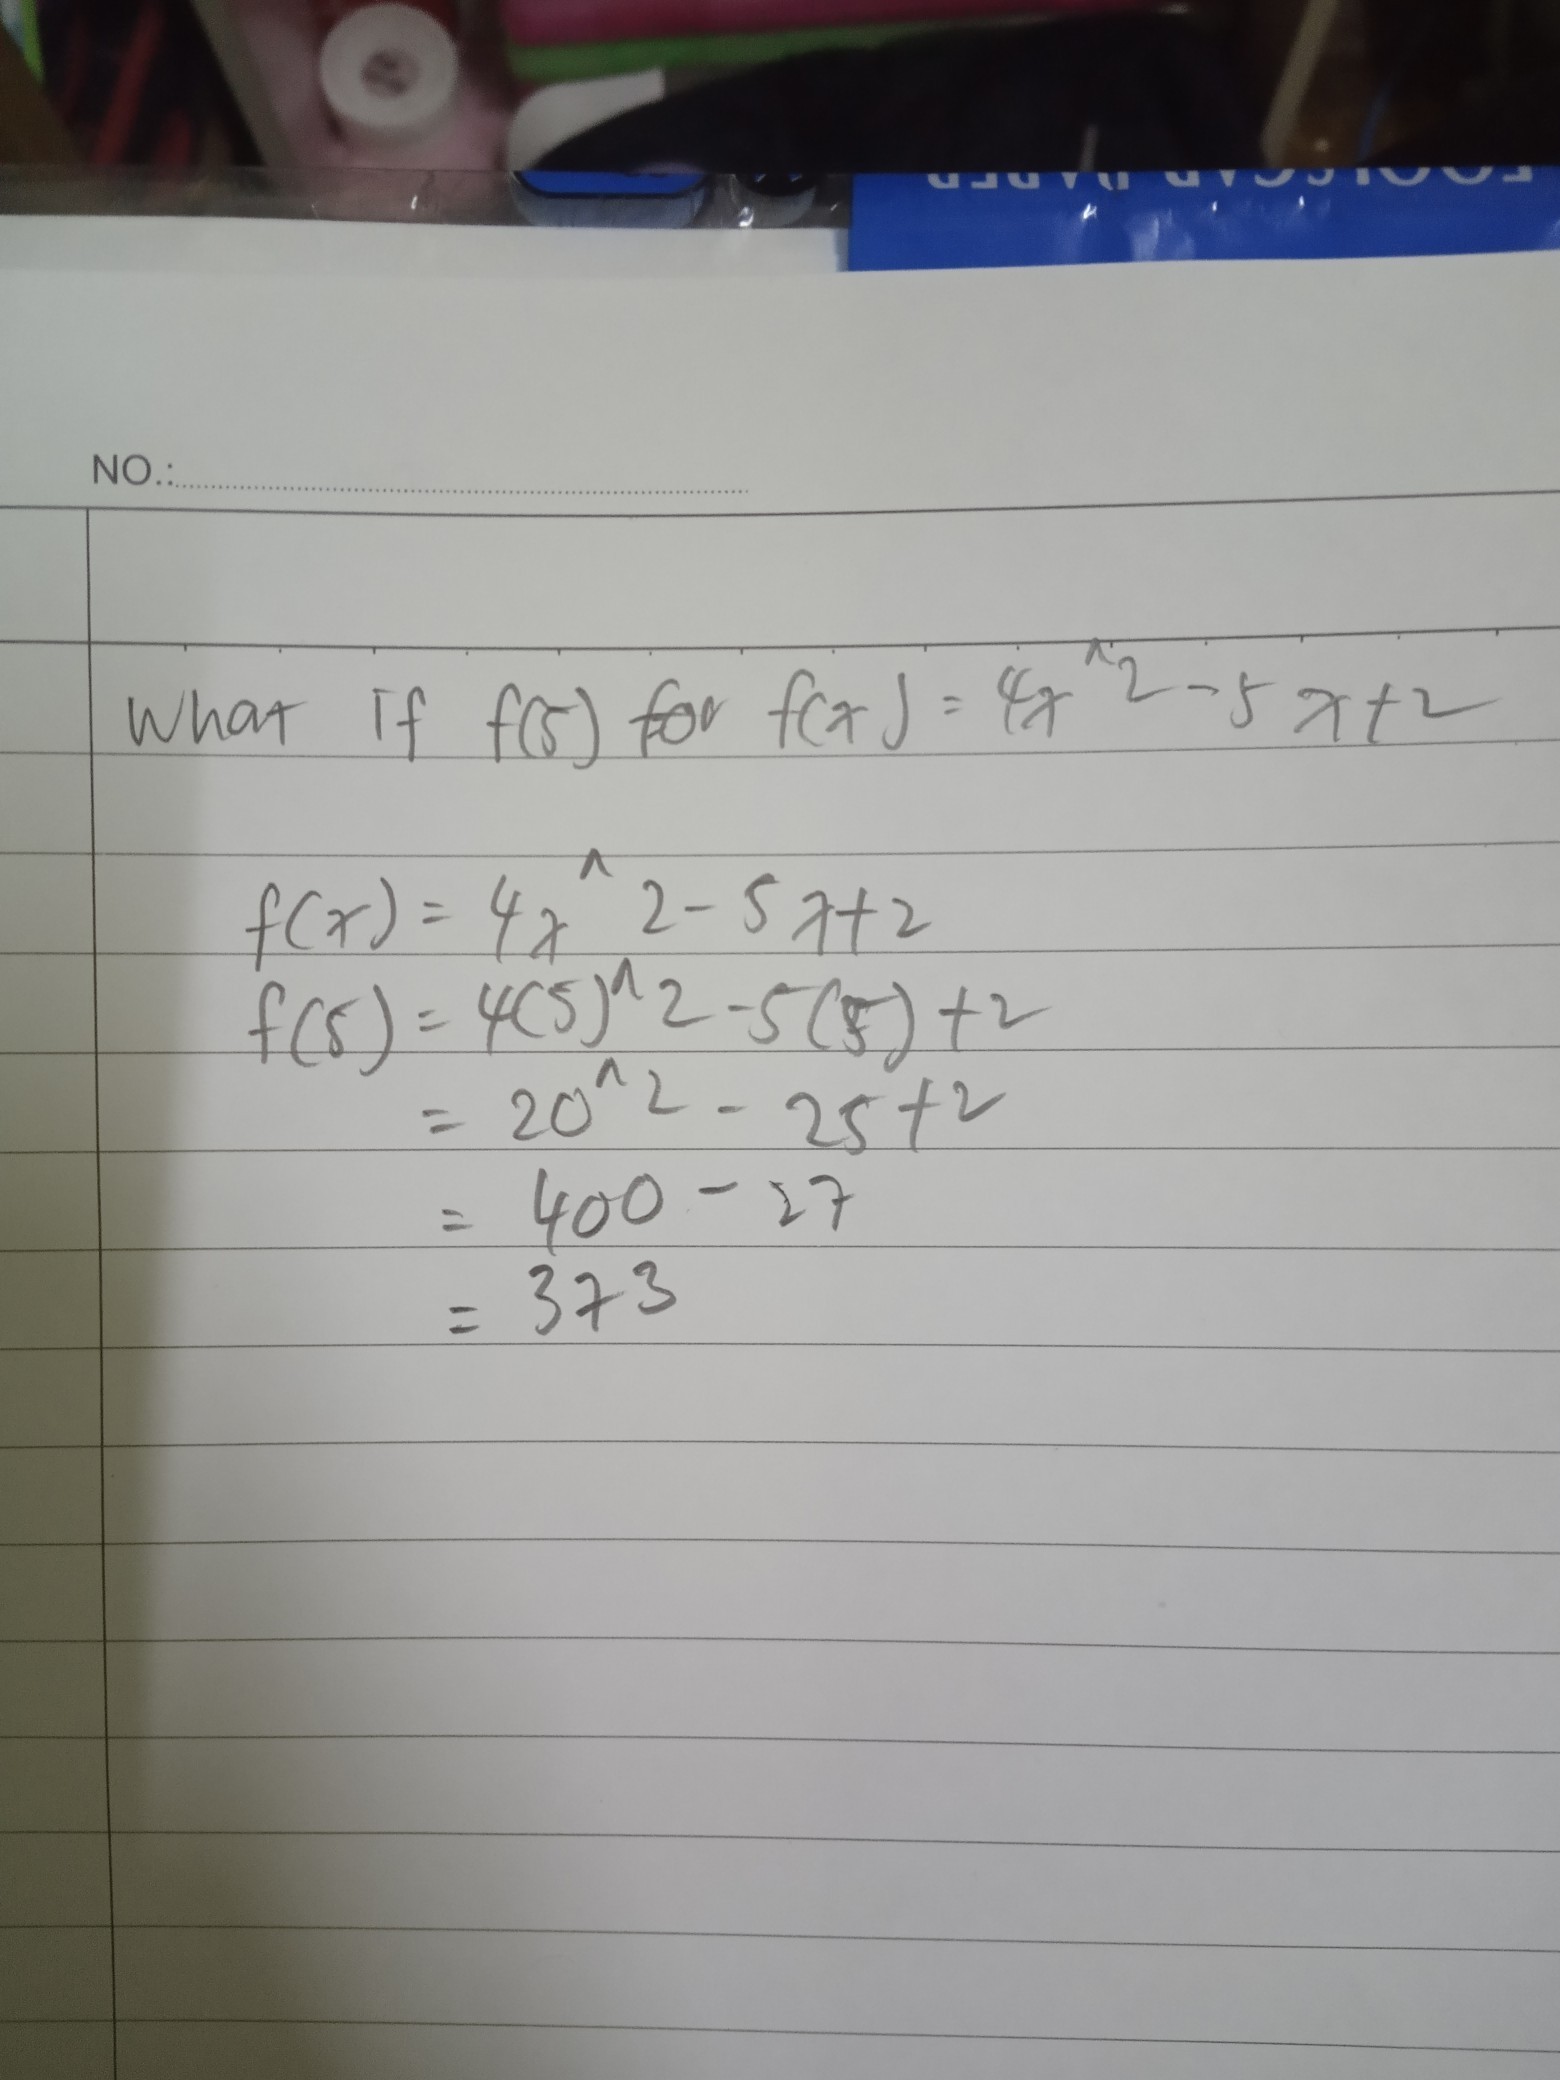 FOOLSCAP PAPER
NO.:
What if f(5) for f(x) = 4x^2 - 5x+2
f(x) = 4x^2 - 5x+2
f(5) = 4(5)^2 - 5(5) + 2
= 20^2 - 25 + 2
= 400 - 27
= 373